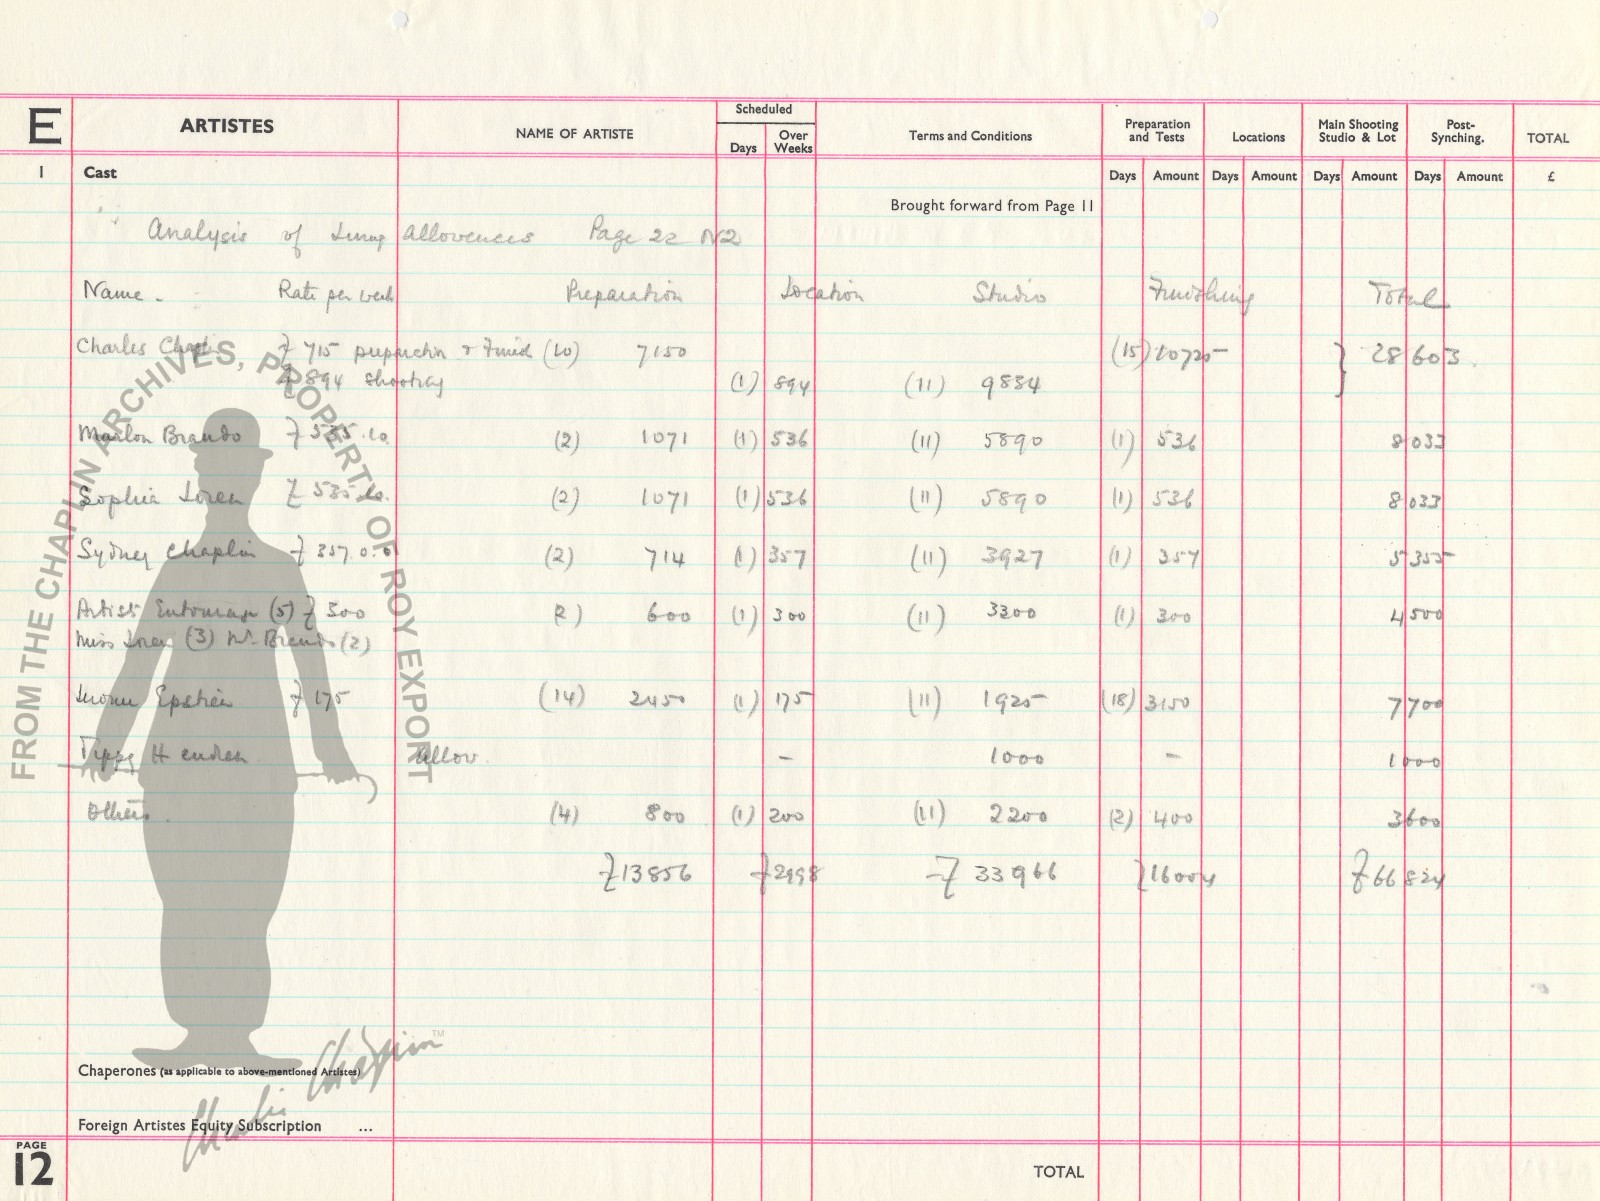 E ARTISTES NAME OF ARTISTE Scheduled Days Over Weeks Terms and Conditions Preparation and Tests Locations Main Shooting Studio & Lot Post-Synching. TOTAL
1 Cast Days Amount Days Amount Days Amount Days Amount £
Brought forward from Page 11
Analysis of Living Allowences Page 22 N2
Name. Rate per week Preparation Location Studio Finishing Total
Charles Chaplin £ 715 preparation & Finish (10) 7150 (15) 10725 } 28 603.
£ 894 shooting (1) 894 (11) 9834
Marlon Brando £ 535.10. (2) 1071 (1) 536 (11) 5890 (1) 536 8 033
Sophia Loren £ 535.10. (2) 1071 (1) 536 (11) 5890 (1) 536 8 033
Sydney Chaplin £ 357.0.0 (2) 714 (1) 357 (11) 3927 (1) 357 5 355
Artist Entourage (5) £ 300 (2) 600 (1) 300 (11) 3300 (1) 300 4 500
Miss Loren (3) Mr. Brando (2)
Epstein £ 175 (14) 2450 (1) 175 (11) 1925 (18) 3150 7 700
Tippy Hendren Allow. – 1000 – 1 000
Others. (4) 800 (1) 200 (11) 2200 (2) 400 3 600
£ 13 856 £ 2998 £ 33 966 £ 16004 £ 66 824
Chaperones (as applicable to above-mentioned Artistes)
Foreign Artistes Equity Subscription ...
PAGE
12 TOTAL
FROM THE CHAPLIN ARCHIVES, PROPERTY OF ROY EXPORT
Charlie Chaplin™